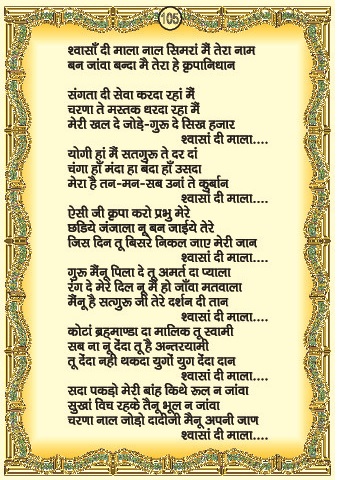 105
श्वासाँ दी माला नाल सिमरां मैं तेरा नाम
बन जांवा बन्दा मै तेरा हे कृपानिधान
संगता दी सेवा करदा रहां मैं
चरणा ते मस्तक धरदा रहा मैं
मेरी खल दे जोड़े-गुरु दे सिख हजार
श्वासां दी माला....
योगी हां मैं सतगुरु ते दर दां
चंगा हाँ मंदा हा बंदा हाँ उसदा
मेरा है तन-मन-सब उनां ते कुर्बान
श्वासां दी माला....
ऐसी जी कृपा करो प्रभु मेरे
छडिये जंजाला नू बन जाईये तेरे
जिस दिन तू बिसरे निकल जाए मेरी जान
श्वासां दी माला....
गुरु मैंनू पिला दे तू अमर्त दा प्याला
रंग दे मेरे दिल नू मैं हो जाँवा मतवाला
मैंनू है सतगुरु जी तेरे दर्शन दी तान
श्वासां दी माला....
कोटां ब्रहमाण्डा दा मालिक तू स्वामी
सब ना नू देंदा तू है अन्तरयामी
तू देंदा नही थकदा युगों युग देंदा दान
श्वासां दी माला....
सदा पकड़ो मेरी बांह किथे रुल न जांवा
सुखां विच रहके तैनू भूल न जांवा
चरणा नाल जोड़ो दादीजी मैनू अपनी जाण
श्वासां दी माला....